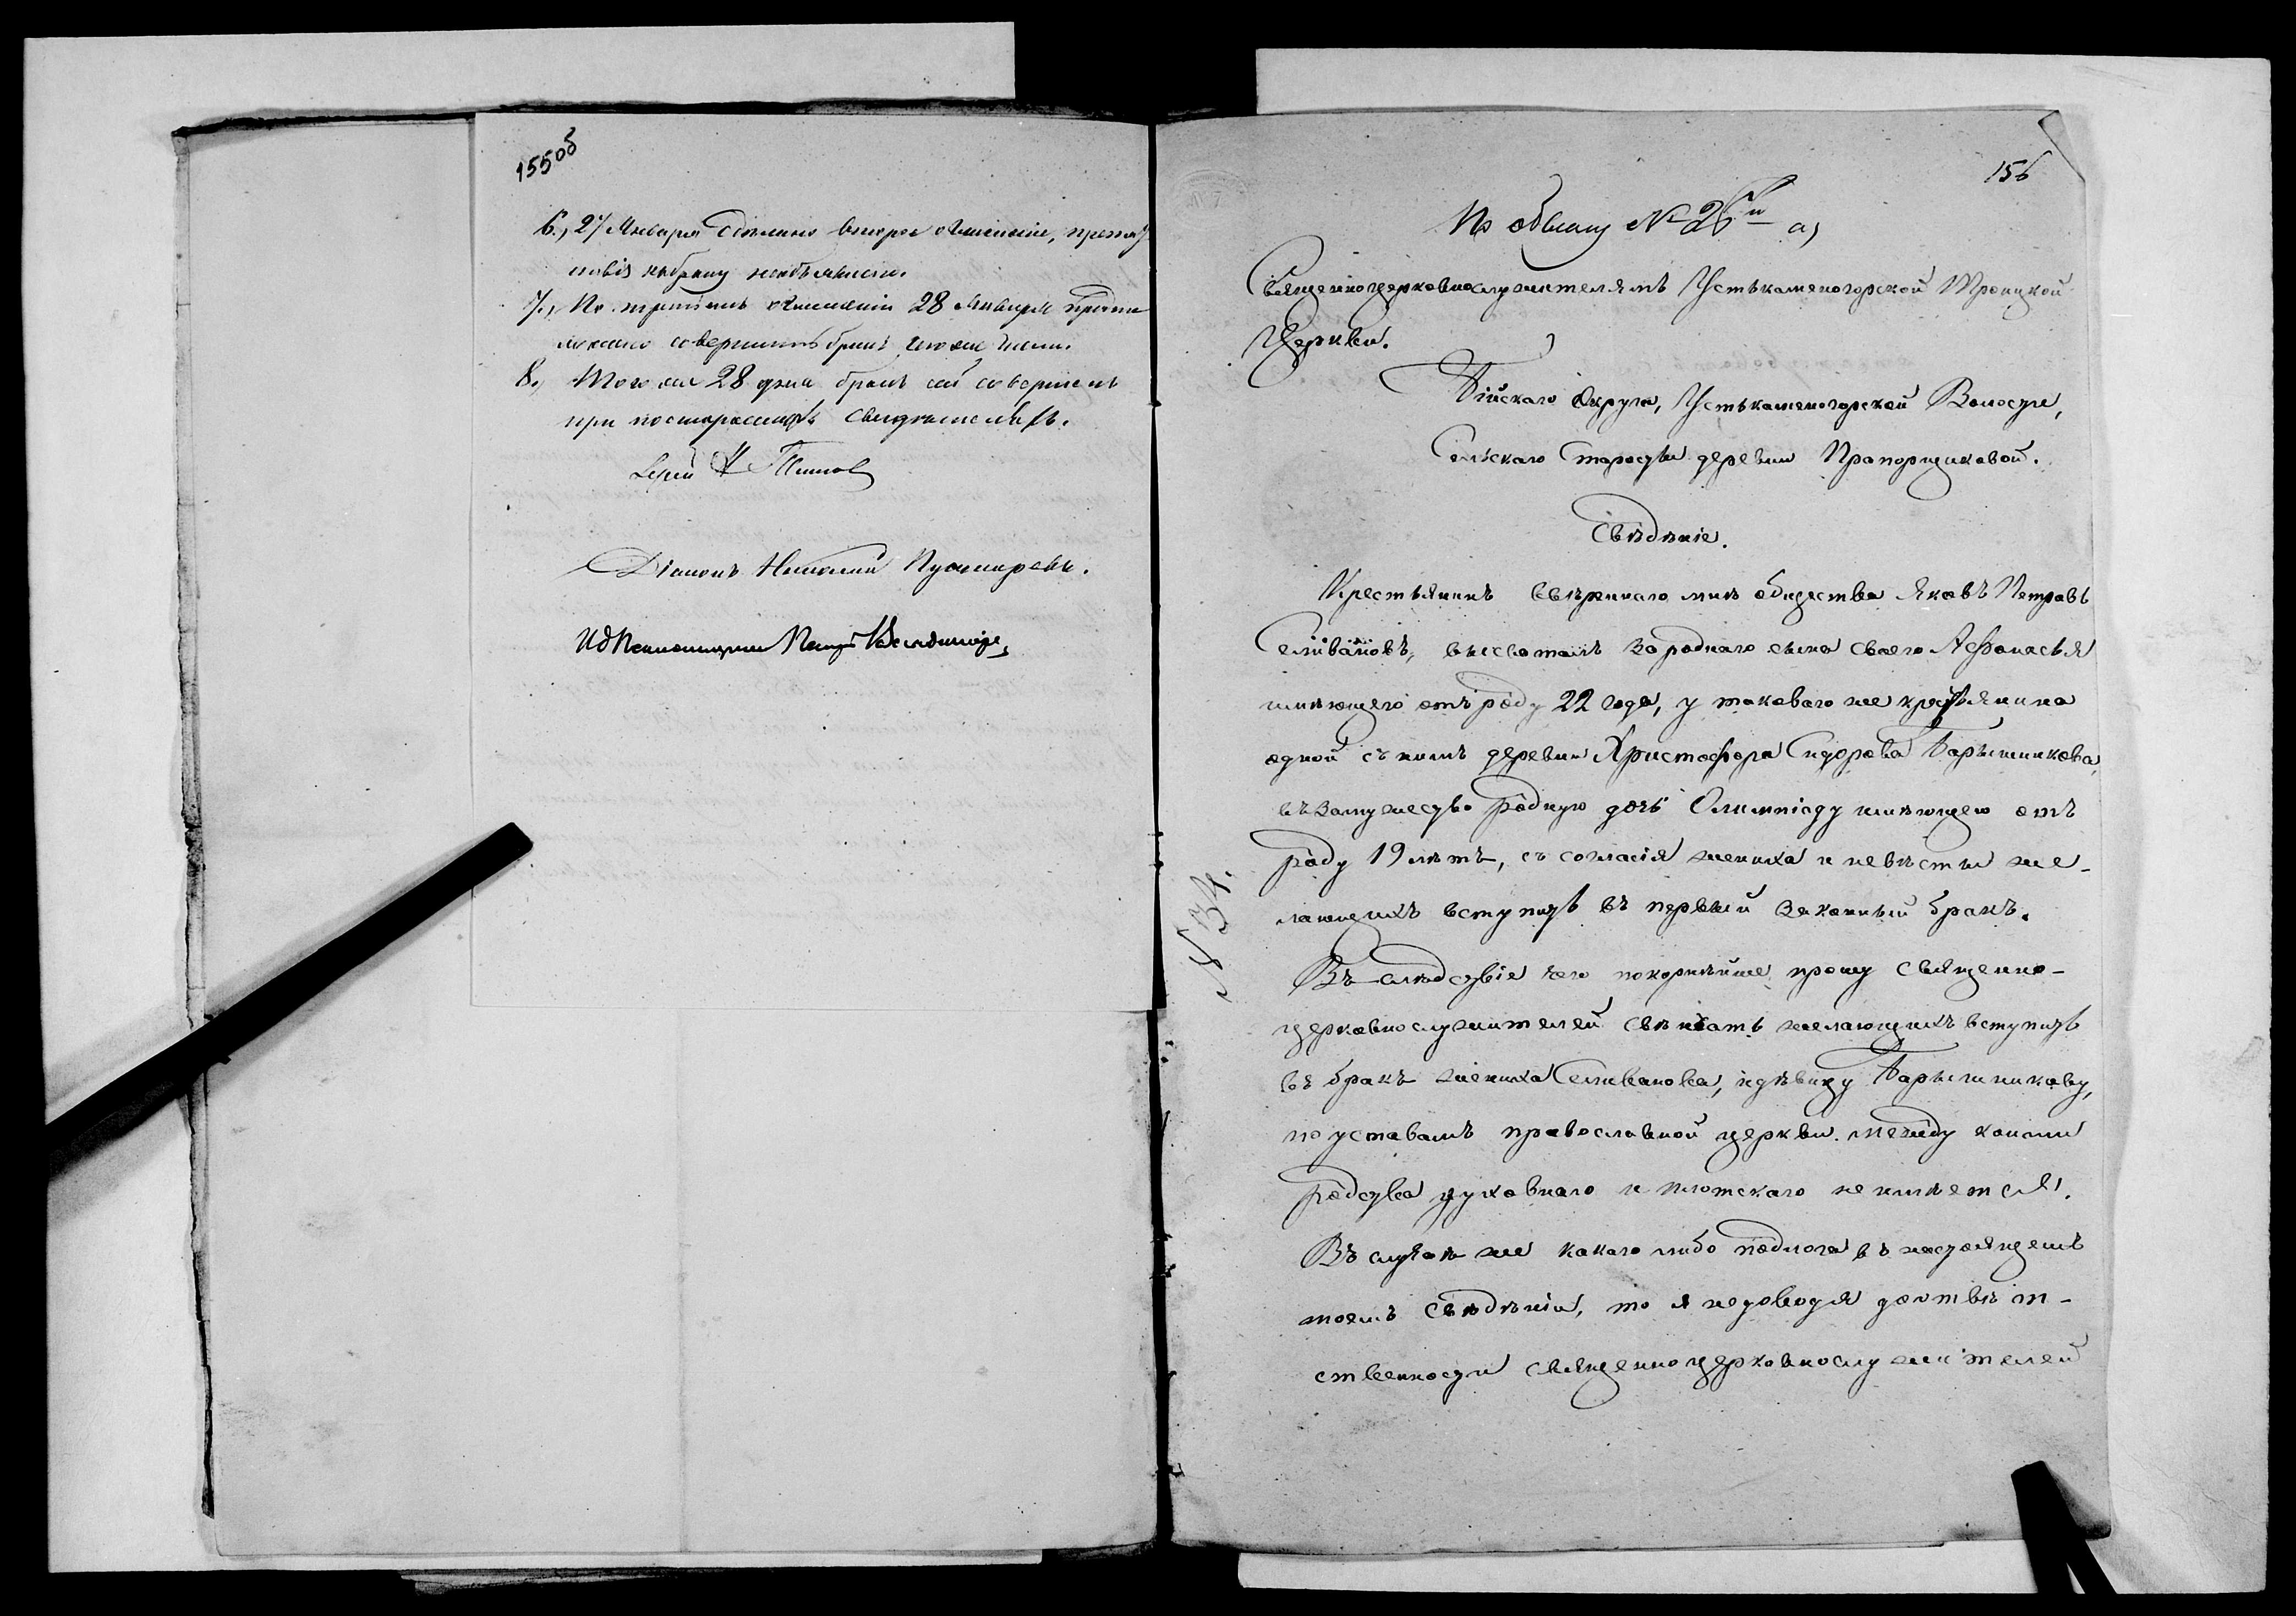 155об
6., 27 Января сделано второе оглашеніе, препят
ствія к браку необъявлено.
7., По третьемъ оглашеніи 28 Января предпо
ложено совершить бракъ
8., Того же 28 дня бракъ сей совершенъ
при постороннихъ свидетеляхъ.
Іерей
Діаконъ Николай
156
По обыску № 26й а,
Священноцерковнослужителямъ Устькаменогорской Троицкой
Церкви.
Бійскаго Округа, Устькаменогорской Волости,
Сельскаго Старосты деревни Прапорщиковой.
Свѣдѣніе.
Крестьянинъ ввѣреннаго мнѣ общества Яковъ Петровъ
Селивановъ, высваталъ за роднаго сына своего Афонасья
имѣющего отъ роду 22 года, у таковаго же крестьянина
одной съ нимъ деревни Христофора Сидорова Барышникова,
въ замужество родную дочь Олимпіаду имѣющею отъ
роду 19 лѣтъ, съ согласія жениха и невѣсты же-
лающихъ вступить въ первый законный бракъ.
Въ слѣдствіе чего покорнѣйше прошу священно-
церковнослужителей свѣнчать желающихъ вступить
въ бракъ жениха Селиванова, и дѣвицу Барышникову,
по уставамъ православной церкви. между коими
родства духовнаго и плотскаго не имѣется.
Въ случаѣ же какаго либо подлога въ настоящемъ
моемъ свѣдѣніи, то я недоводя до отвѣт-
ственности священноцерковнослужителей
№ 34.